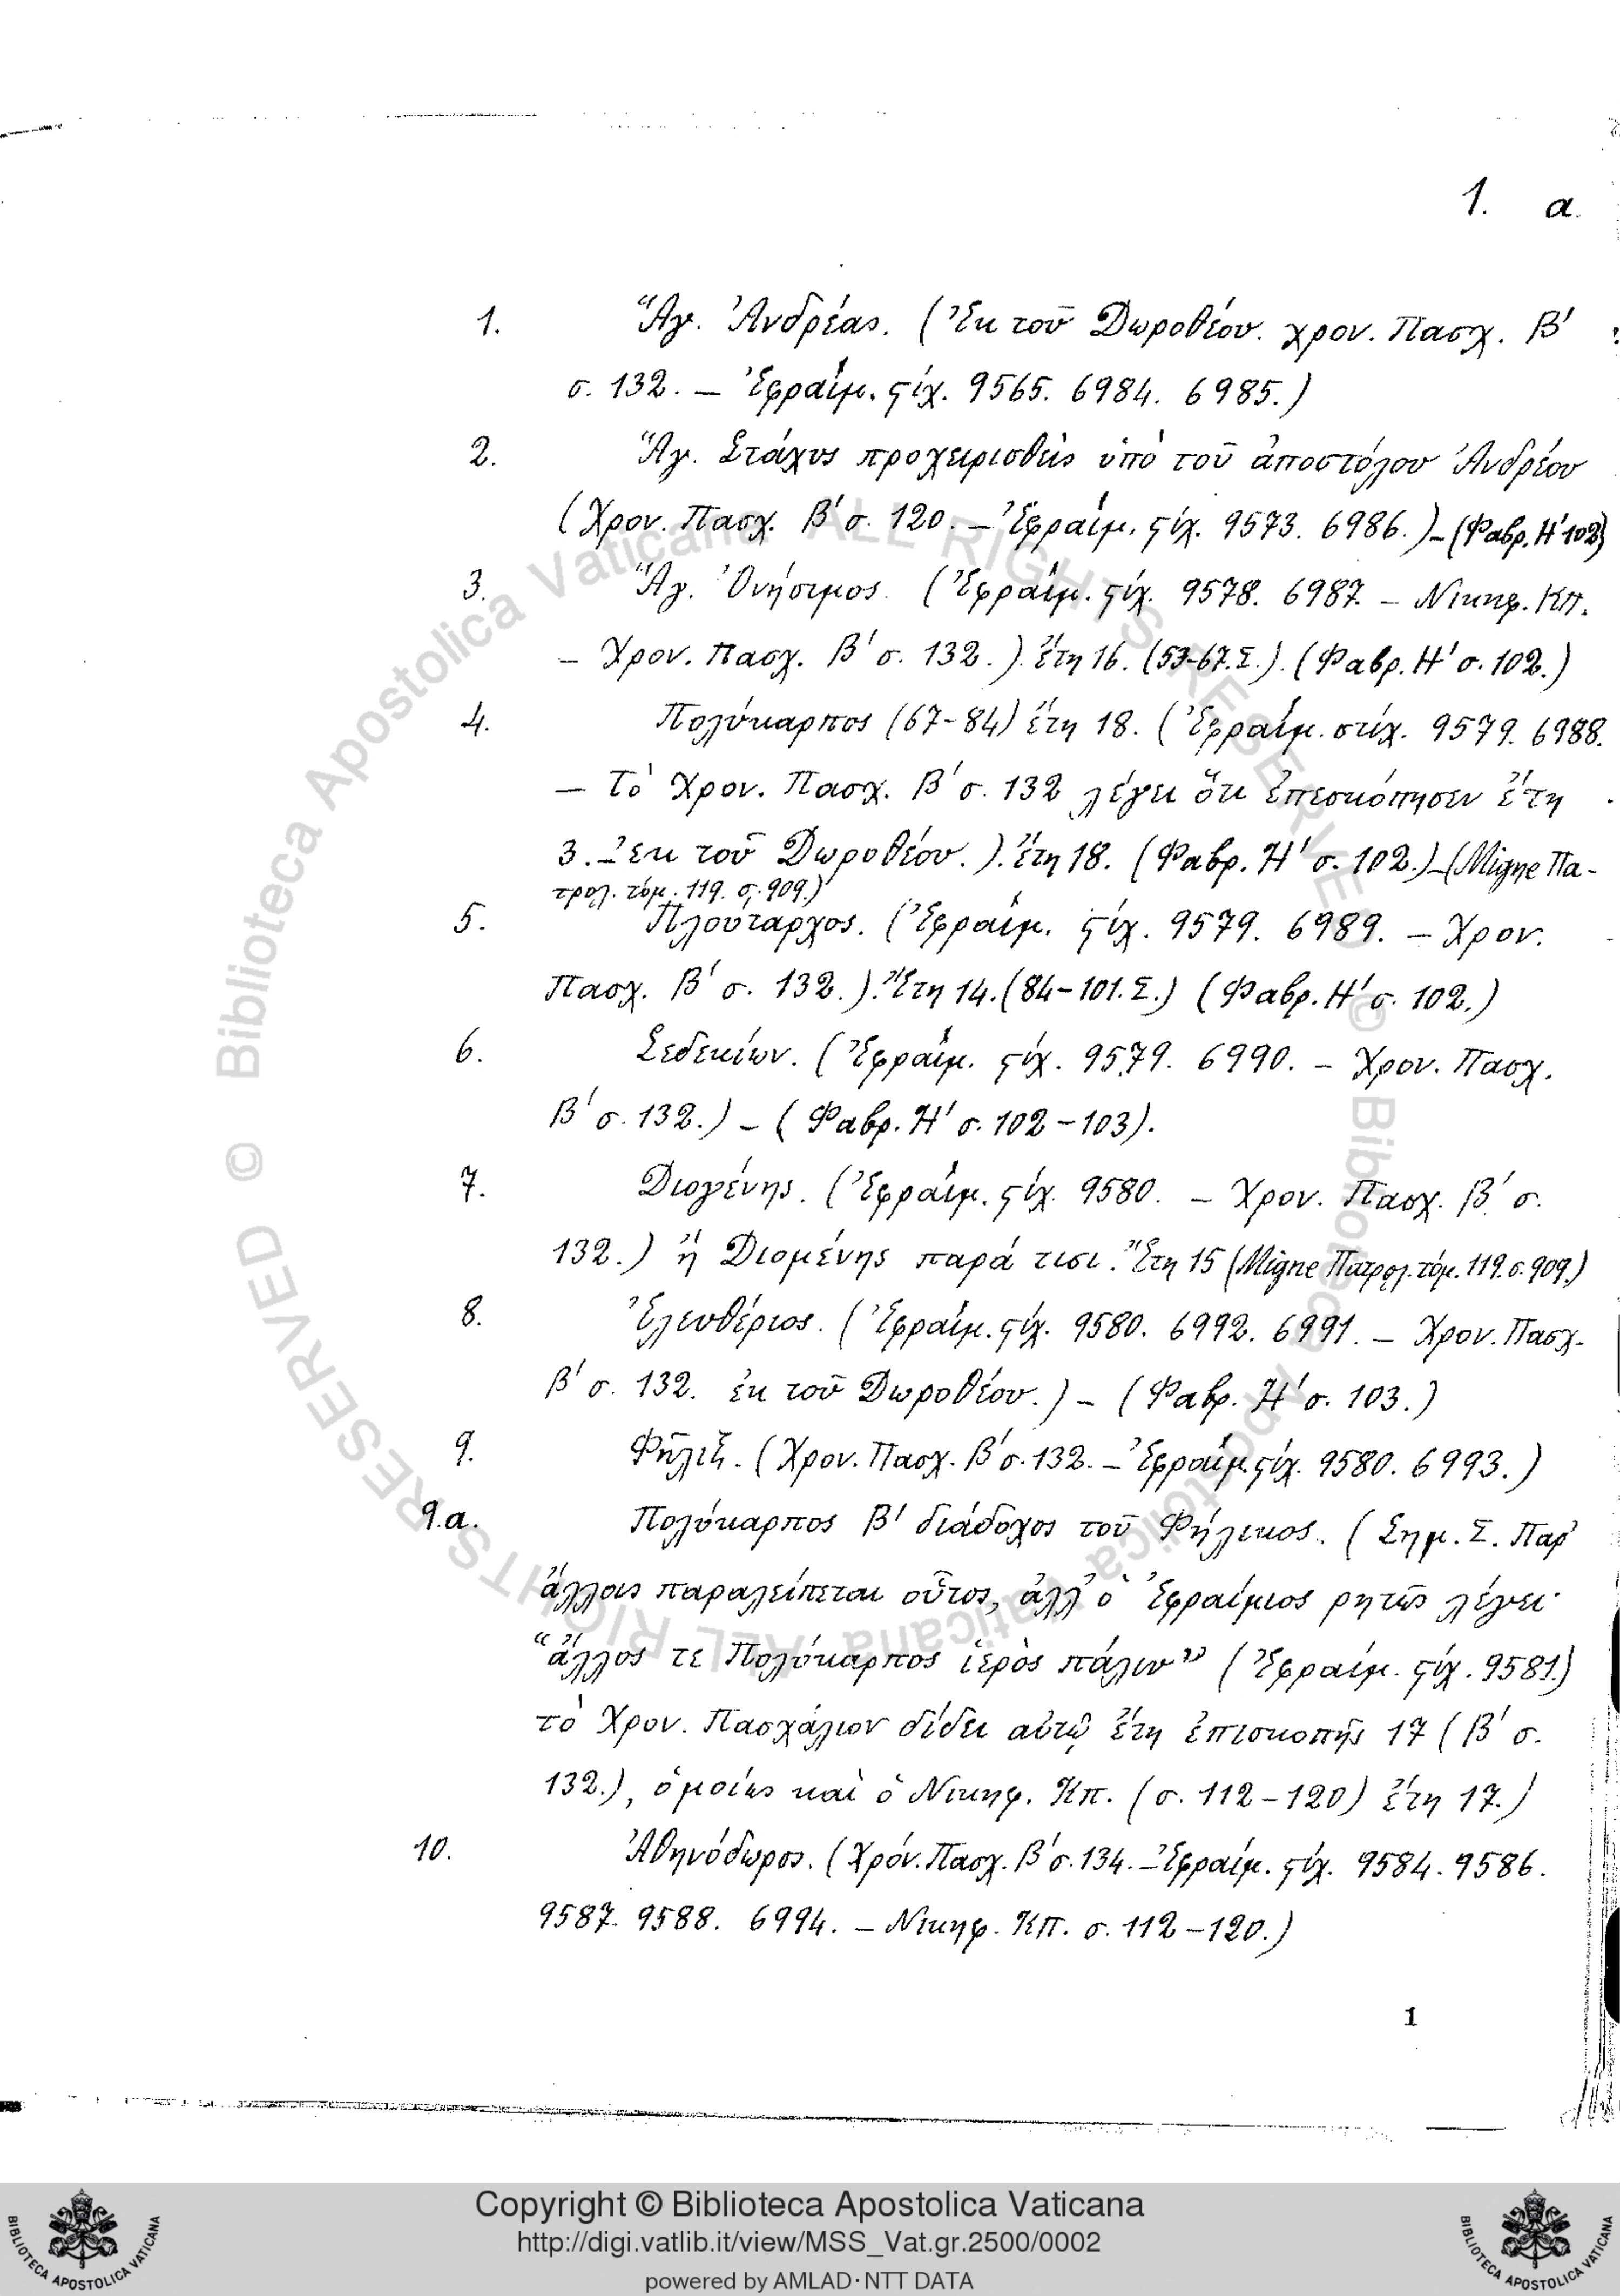 1. α.
1. Ἅγ. Ἀνδρέας. (Ἐκ τοῦ Δωροθέου. χρον. Πασχ. Β′
σ. 132. — Ἐφραίμ. ςίχ. 9565. 6984. 6985.)
2. Ἅγ. Στάχυς προχειρισθεὶς ὑπὸ τοῦ ἀποστόλου Ἀνδρέου
(Χρον. Πασχ. Β′ σ. 120. — Ἐφραίμ. ςίχ. 9573. 6986.) – (Φαβρ. Η′ 102)
3. Ἅγ. Ὀνήσιμος. (Ἐφραίμ. ςίχ. 9578. 6987. – Νικηφ. Κπ.
– Χρον. Πασχ. Β′ σ. 132.). ἔτη 16. (53-67. Σ.). (Φαβρ. Η′ σ. 102.)
4. Πολύκαρπος (67-84) ἔτη 18. (Ἐφραίμ. στίχ. 9579. 6988.
— Τὸ Χρον. Πασχ. Β′ σ. 132 λέγει ὅτι ἐπεσκόπησεν ἔτη
3. – ἐκ τοῦ Δωροθέου.). ἔτη 18. (Φαβρ. Η′ σ. 102.) – (Migne Πα-
τρολ. τόμ. 119. σ. 909.)
5. Πλούταρχος. (Ἐφραίμ. ςίχ. 9579. 6989. – Χρον.
Πασχ. Β′ σ. 132.). Ἔτη 14. (84-101. Σ.) (Φαβρ. Η′ σ. 102.)
6. Σεδεκίων. (Ἐφραίμ. ςίχ. 9579. 6990. – Χρον. Πασχ.
Β′ σ. 132.) – (Φαβρ. Η′ σ. 102-103).
7. Διογένης. (Ἐφραίμ. ςίχ. 9580. – Χρον. Πασχ. Β′ σ.
132.) ἢ Διομένης παρά τισι. Ἔτη 15 (Migne Πατρολ. τόμ. 119. σ. 909.)
8. Ἐλευθέριος. (Ἐφραίμ. ςίχ. 9580. 6992. 6991. – Χρον. Πασχ.
Β′ σ. 132. ἐκ τοῦ Δωροθέου.) – (Φαβρ. Η′ σ. 103.)
9. Φῆλιξ. (Χρον. Πασχ. Β′ σ. 132. – Ἐφραίμ. ςίχ. 9580. 6993.)
9.α. Πολύκαρπος Β′ διάδοχος τοῦ Φήλικος. (Σημ. Σ. Παρ'
ἄλλοις παραλείπεται οὗτος, ἀλλ' ὁ Ἐφραίμιος ρητῶς λέγει·
“ἄλλος τε Πολύκαρπος ἱερὸς πάλιν” (Ἐφραίμ. ςίχ. 9581.)
τὸ Χρον. Πασχάλιον δίδει αὐτῷ ἔτη ἐπισκοπῆς 17 (Β′ σ.
132.), ὁμοίως καὶ ὁ Νικηφ. Κπ. (σ. 112-120) ἔτη 17.)
10. Ἀθηνόδωρος. (Χρόν. Πασχ. Β′ σ. 134. – Ἐφραίμ. ςίχ. 9584. 9586.
9587. 9588. 6994. – Νικηφ. Κπ. σ. 112-120.)
1
© Biblioteca Apostolica Vaticana ALL RIGHTS RESERVED
© Biblioteca Apostolica Vaticana ALL RIGHTS RESERVED
Copyright © Biblioteca Apostolica Vaticana
http://digi.vatlib.it/view/MSS_Vat.gr.2500/0002
powered by AMLAD·NTT DATA
BIBLIOTECA APOSTOLICA VATICANA
BIBLIOTECA APOSTOLICA VATICANA